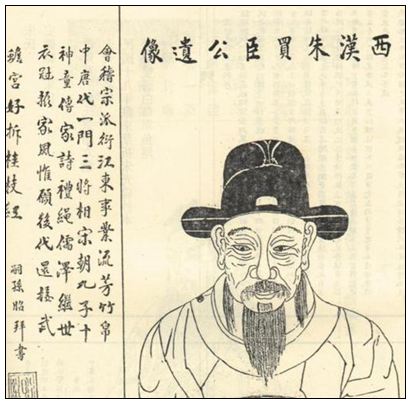 西漢朱買臣公遺像
會稽宗派衍江東事業流芳竹帛
中唐代一門三將相宗朝九子十
神童傳家詩禮繩儒澤繼世
衣冠家風惟願後代還接武
蟾宮好拆桂枝紅
嗣孫拜書